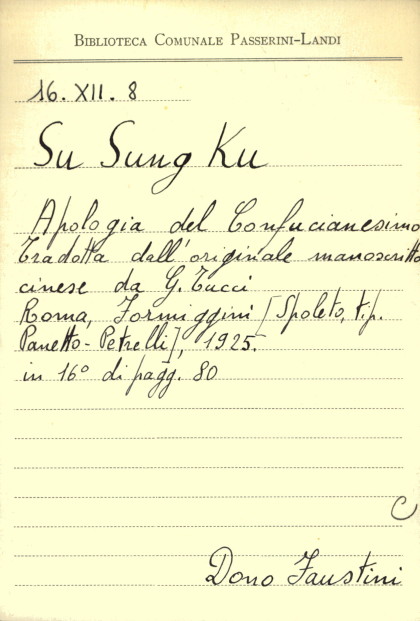 BIBLIOTECA COMUNALE PASSERINI-LANDI
16. XII. 8
Su Sung Ku
Apologia del Confucianesimo
tradotta dall'originale manoscritto
cinese da G. Tucci
Roma, Formiggini [Spoleto, tip.
Panetto-Petrelli], 1925.
in 16° di pagg. 80
C
Dono Faustini